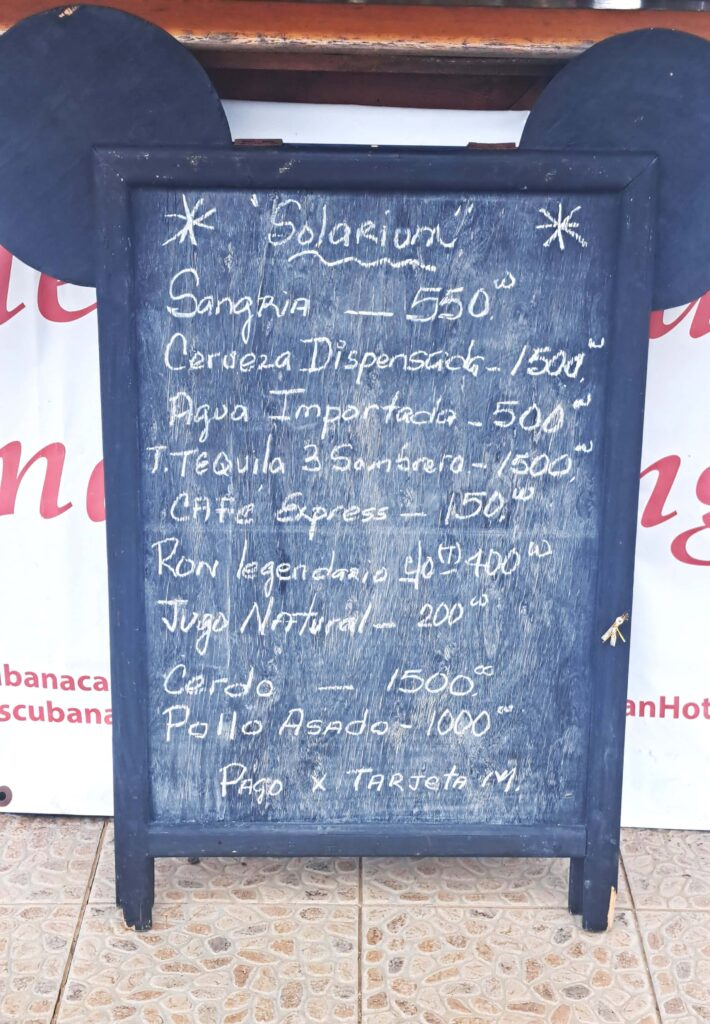 "Solarium"
Sangria — 550.00
Cerveza Dispensada - 1500.00
Agua Importada - 500.00
T. TEQUILA 3 Sombrero - 1500.00
CAFÉ Express — 150.00
RON legendario 40(T) 400.00
Jugo NATural - 200.00
Cerdo — 1500.00
Pollo ASADO - 1000.00
PAGO x TARJetA M.
banaca
scubana
anHot